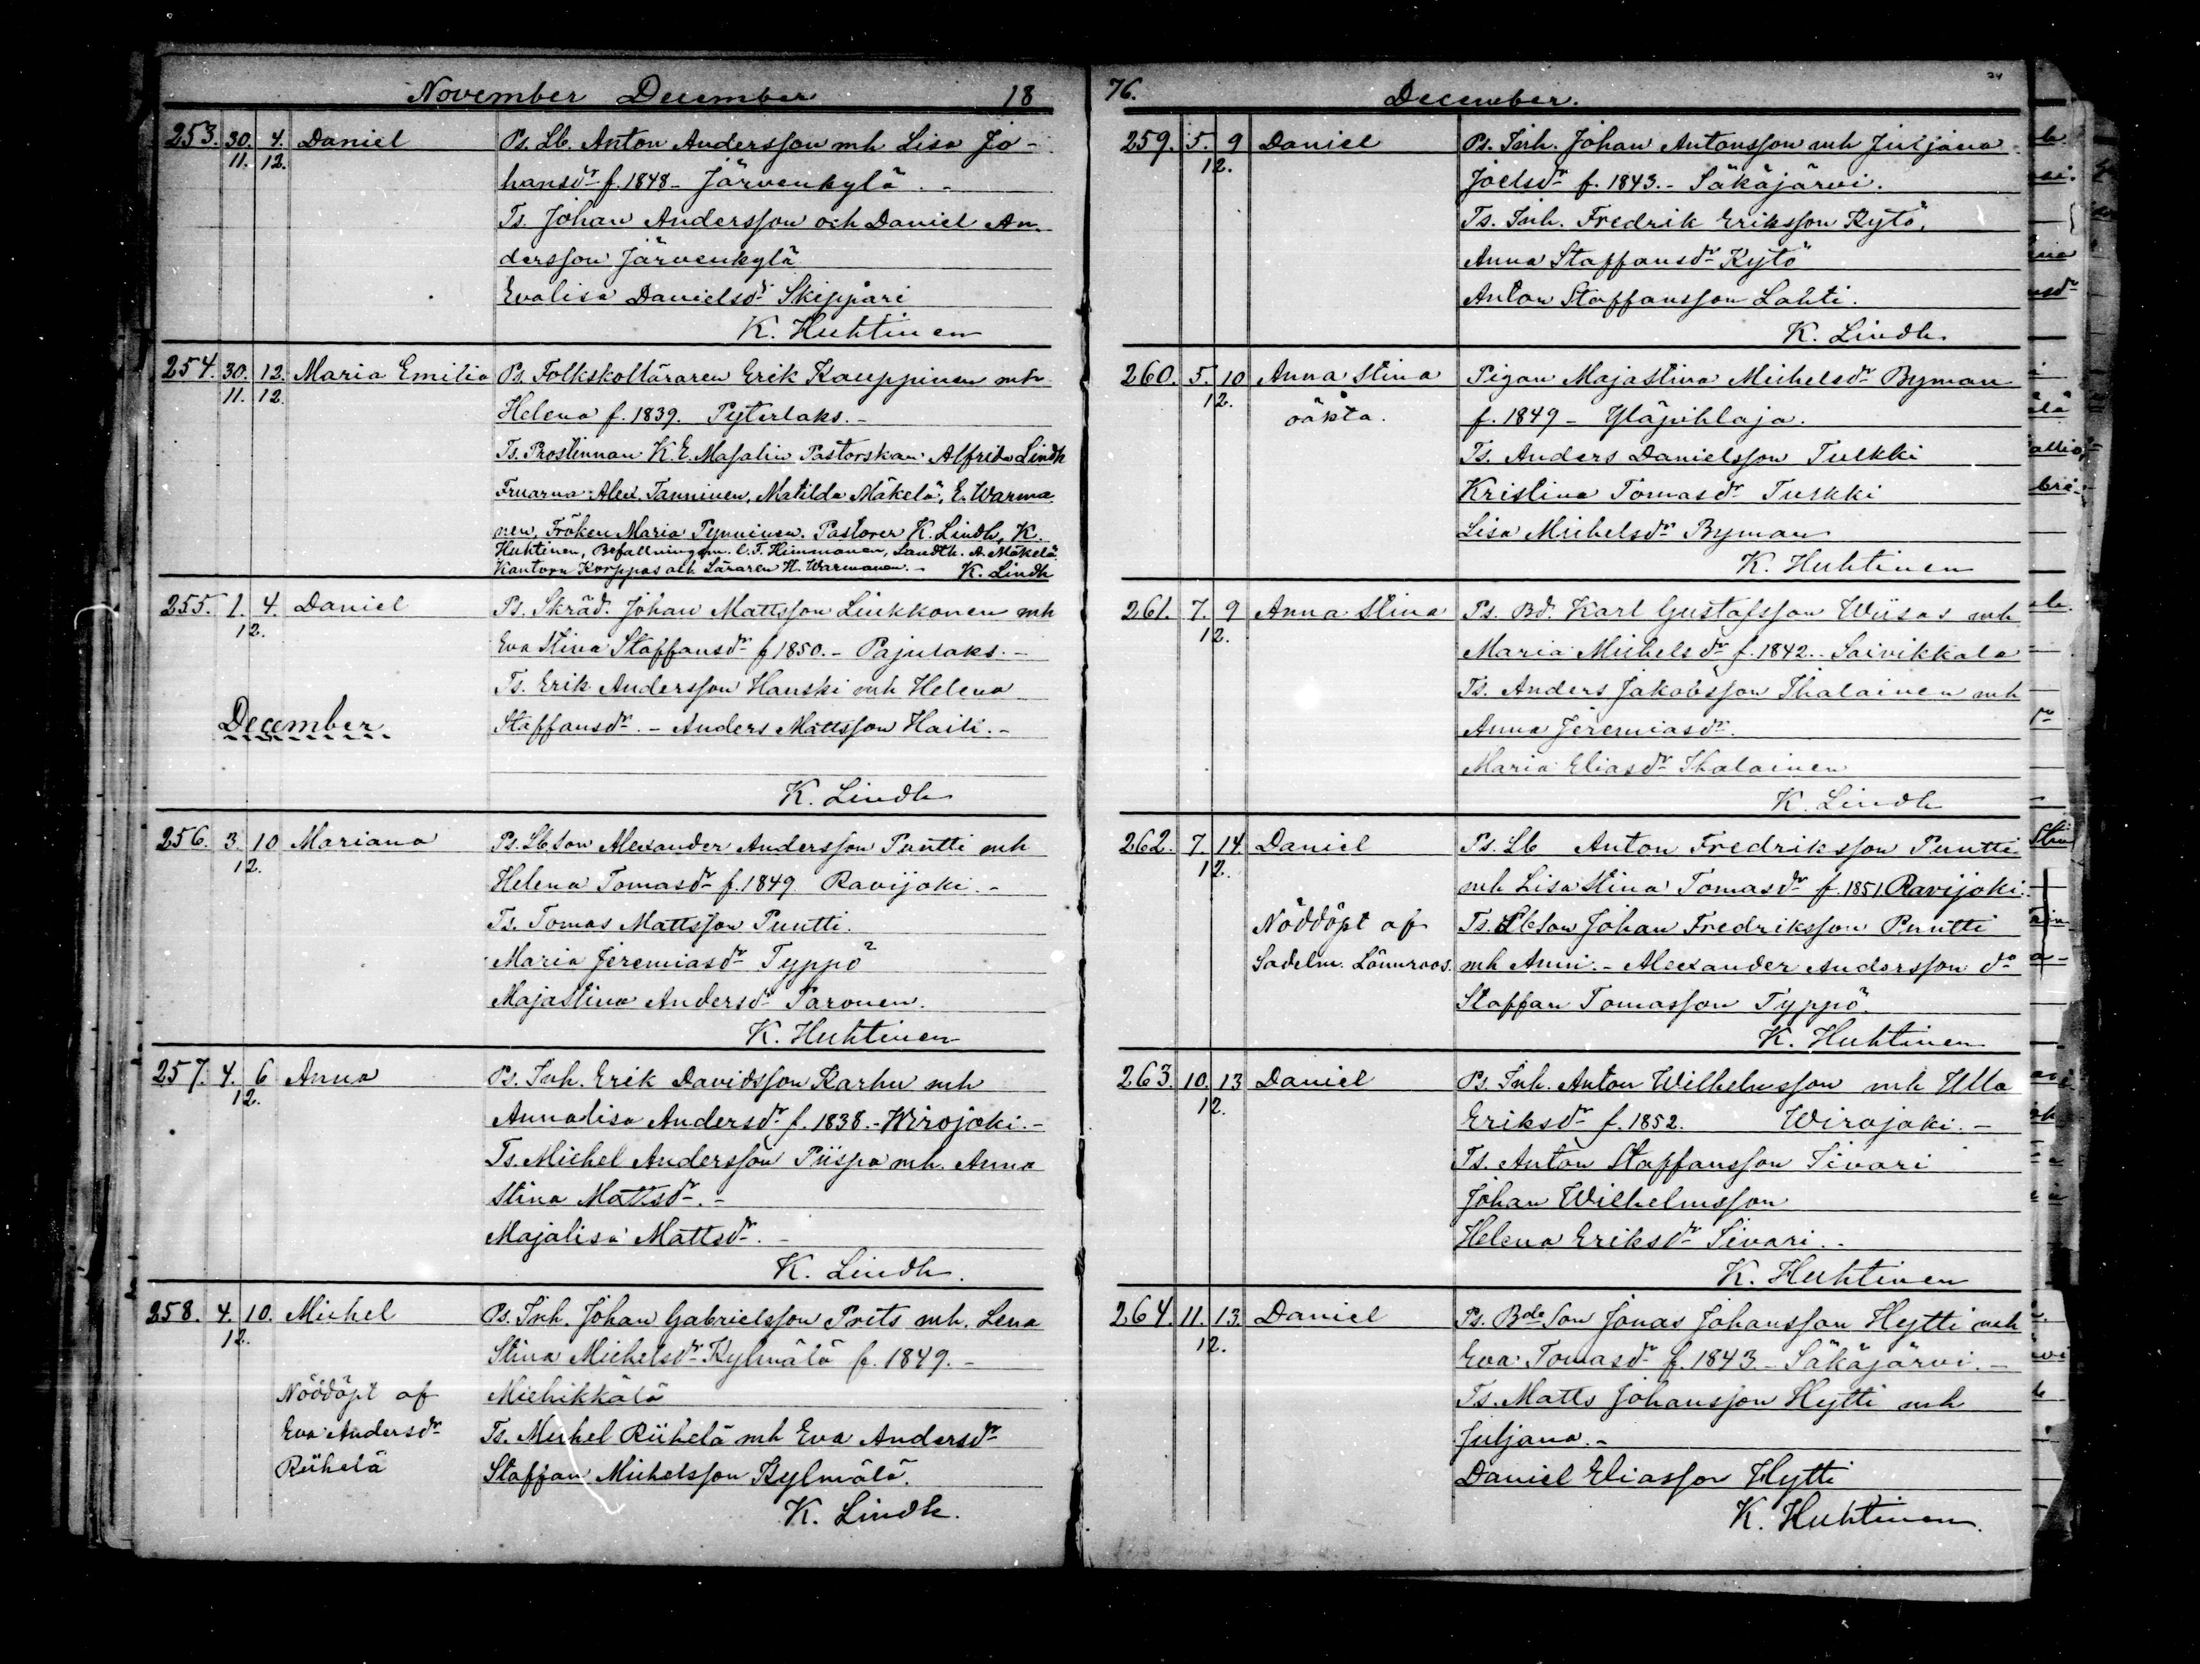 November December 18
253. 30. 4. Daniel Ps. Lb. Anton Andersson mh Lisa Jo-
11. 12. hansdr f. 1848 - Järvenkylä. -
Ts. Johan Andersson och Daniel An-
dersson Järvenkylä
Evalisa Danielsdr Skippari
K. Huhtinen
254. 30. 12. Maria Emilia Ps. Folkskolläraren Erik Kauppinen mh
11. 12. Helena f. 1839. Pyterlaks. -
Ts. Prostinnan K. E. Masalin Pastorskan Alfrida Lindh
Fruarna Alex. Tanninen, Matilda Mäkelä, E. Warma
nen, Fröken Maria Pynninen. Pastorer K. Lindh, K.
Huhtinen, Befallningsm. C. F. Himmanen, Landth. A. Mäkelä
Kantorn Korppas och Läraren H. Warmanen. - K. Lindh
255. 1. 4. Daniel Ps. Skräd. Johan Mattsson Liukkonen mh
12. Eva Stina Staffansdr f 1850. - Pajulaks. -
Ts. Erik Andersson Hanski mh Helena
December Staffansdr. - Anders Mattsson Haili. -
K. Lindh
256. 3. 10 Mariana Ps. Lb. Son Alexander Andersson Puutti mh
12. Helena Tomasdr f. 1849 Ravijoki. -
Ts. Tomas Mattsson Puutti.
Maria Jeremiasdr Typpö
Majastina Andersdr Paronen.
K. Huhtinen
257. 4. 6 Anna Ps. Inh. Erik Davidsson Karhu mh
12. Annalisa Andersdr f. 1838. - Wirojoki. -
Ts. Michel Andersson Piispa mh. Anna
Stina Mattsdr. -
Majalisa Mattsdr. -
K. Lindh.
258. 4. 10. Michel Ps. Inh. Johan Gabrielsson Prits mh. Lena
12. Stina Michelsdr Kylmälä f. 1849. -
Nöddöpt af Miehikkälä
Eva Andersdr Ts. Michel Riihelä mh Eva Andersdr
Riihelä Staffan Michelsson Kylmälä.
K. Lindh.
76. December.
259. 5. 9 Daniel Ps. Inh. Johan Antonsson mh Juljana
12. Joelsdr f. 1843. - Säkäjärvi.
Ts. Inh. Fredrik Eriksson Kytö,
Anna Staffansdr Kytö
Anton Staffansson Lahti.
K. Lindh.
260. 5. 10 Anna Stina Pigan Majastina Michelsdr Byman
12. oäkta. f. 1849 - Yläpihlaja.
Ts. Anders Danielsson Tulkki
Kristina Tomasdr Tulkki
Lisa Michelsdr Byman
K. Huhtinen
261. 7. 9 Anna Stina Ps. Bd. Karl Gustafsson Wiisas mh
12. Maria Michelsdr f. 1842. - Saivikkala
Ts. Anders Jakobsson Ihalainen mh
Anna Jeremiasdr.
Maria Eliasdr Ihalainen
K. Lindh
262. 7. 14. Daniel Ps. Lb Anton Fredriksson Puutti
12. mh Lisa Stina Tomasdr f. 1851 Ravijoki. -
Nöddöpt af Ts. Lb Son Johan Fredriksson Puutti
Sadelm. Lönnroos. mh Anni. - Alexander Andersson do
Staffan Tomasson Typpö.
K. Huhtinen
263. 10. 13 Daniel Ps. Inh. Anton Wilhelmsson mh Ulla
12. Eriksdr f. 1852. Wirojoki. -
Ts. Anton Staffansson Sivari
Johan Wilhelmsson
Helena Eriksdr Sivari. -
K. Huhtinen
264. 11. 13. Daniel Ps. Bde Son Jonas Johansson Hytti mh
12. Eva Tomasdr f. 1843 - Säkäjärvi. -
Ts. Matts Johansson Hytti mh
Juljana. -
Daniel Eliasson Hytti
K. Huhtinen.